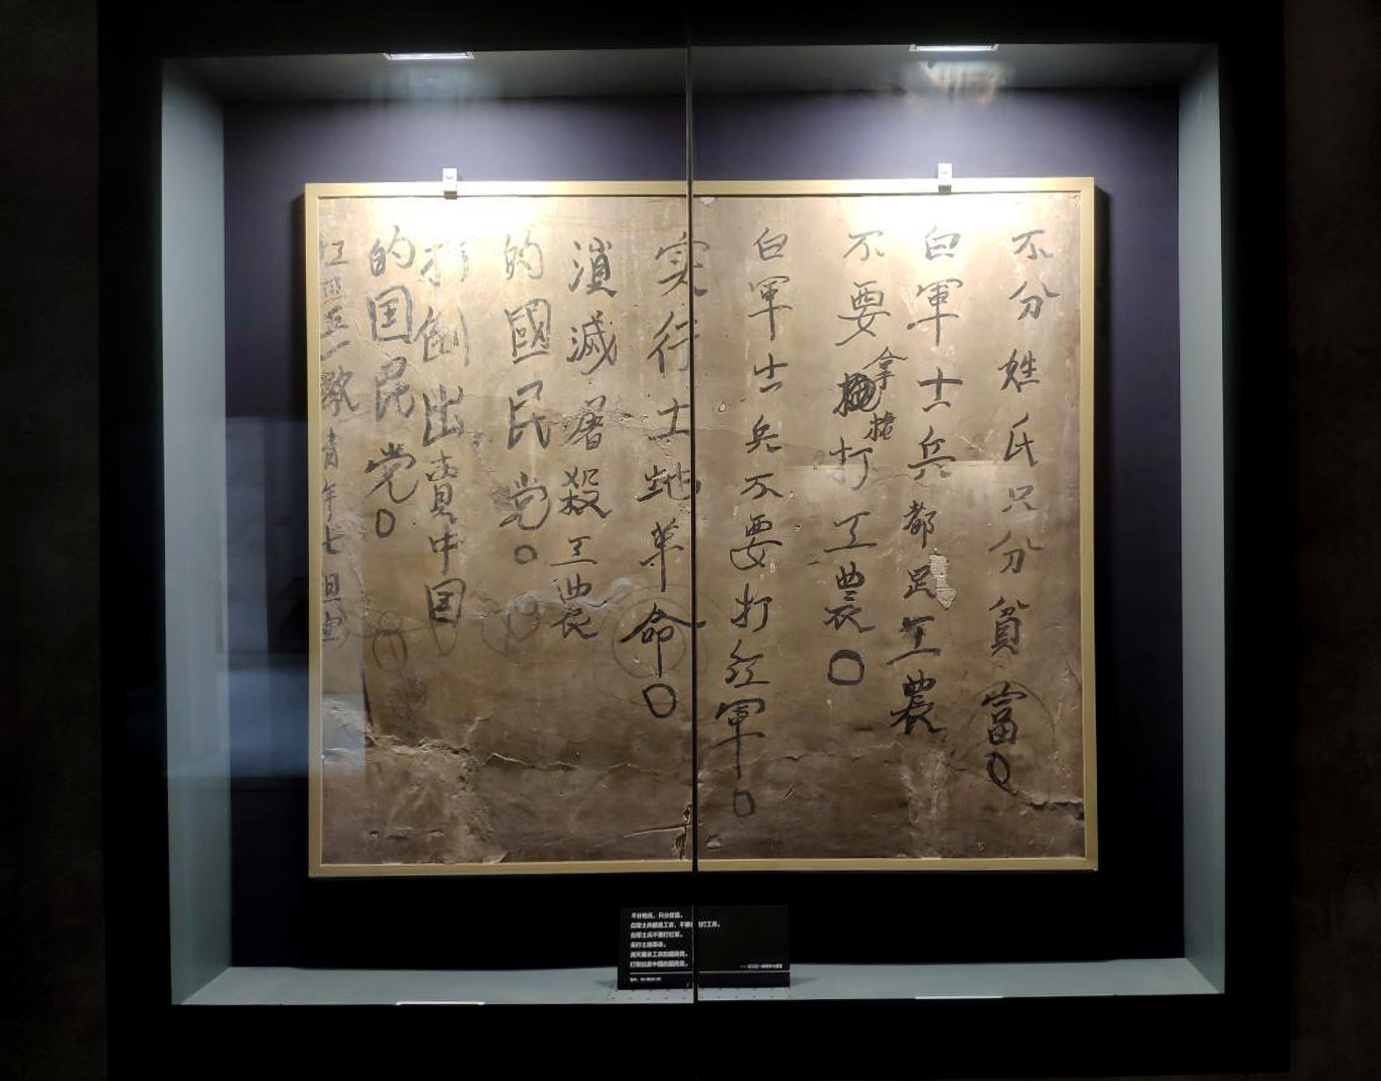 不分姓氏只分貧富。
白軍士兵都是工農
不要拿槍打工農。
白軍士兵不要打紅軍。
实行土地革命。
消滅屠殺工農
的國民党。
打倒出賣中国
的国民党。
不分姓氏，只分贫富。
白军士兵都是工农，不要拿枪打工农。
白军士兵不要打红军。
实行土地革命。
消灭屠杀工农的国民党。
打倒出卖中国的国民党。